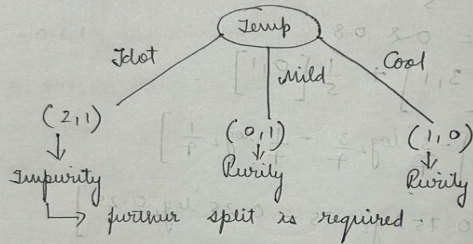 Temp
Hot Mild Cool
(2,1) (0,1) (1,0)
Impurity Purity Purity
further split is required.